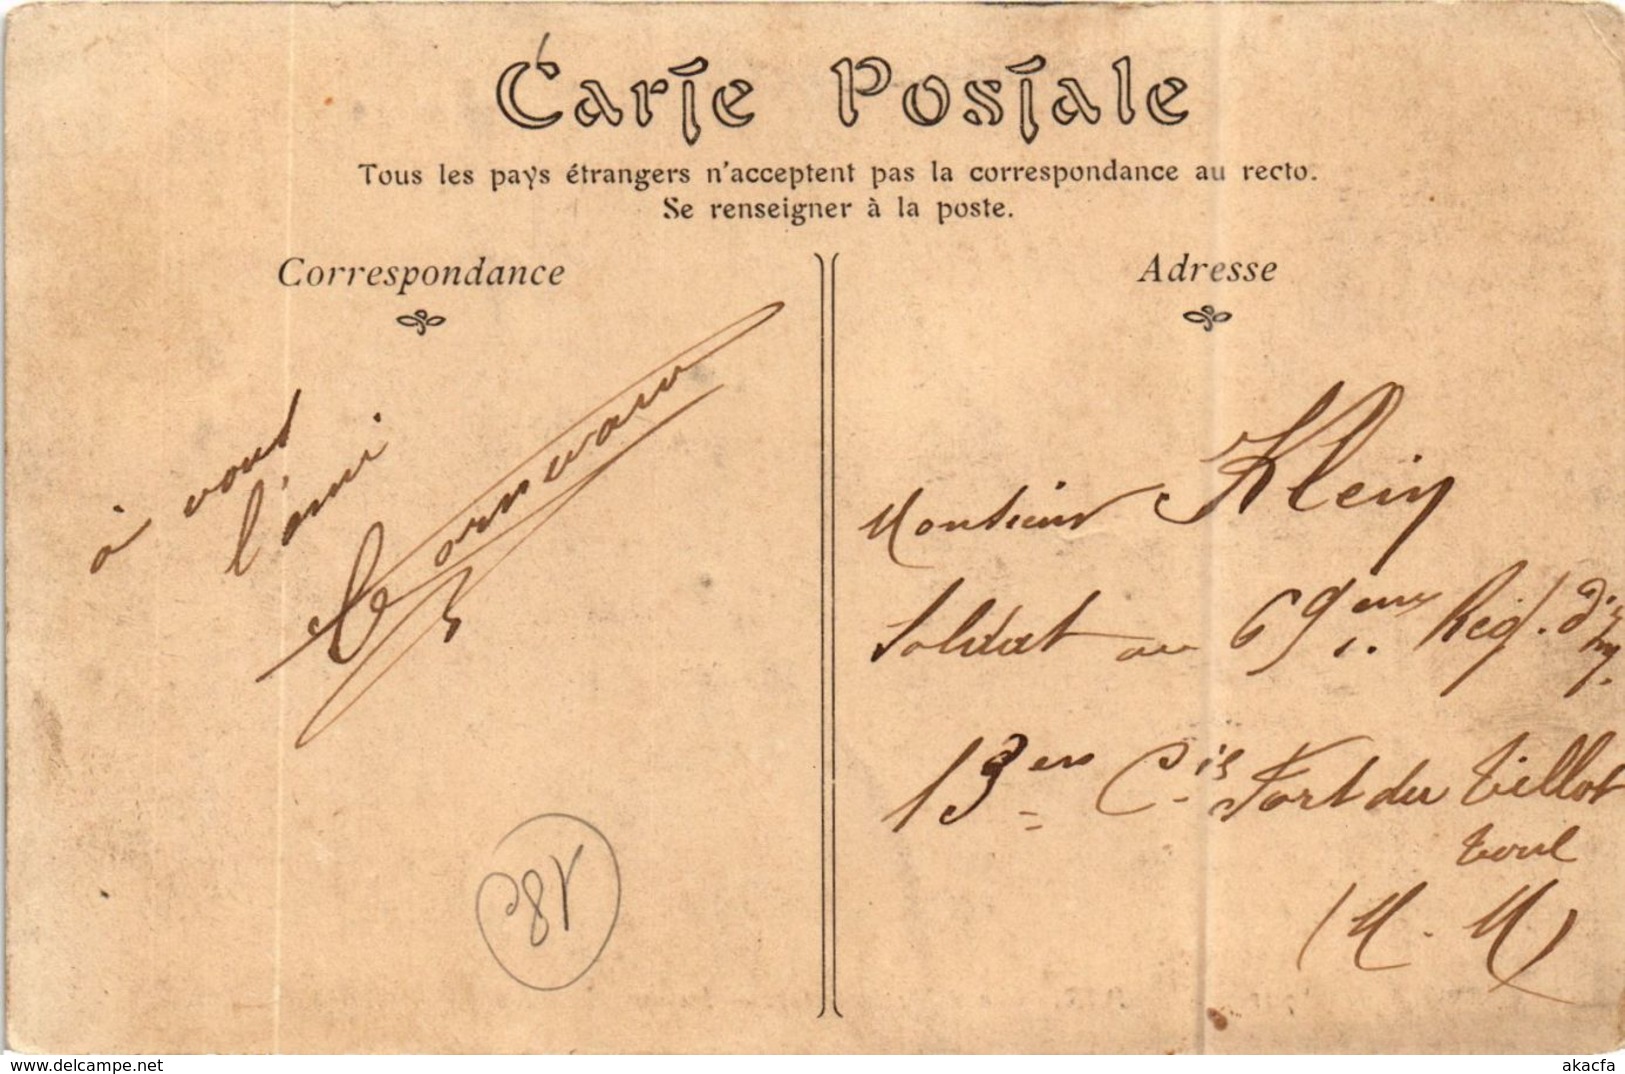 Carte Postale
Tous les pays étrangers n'acceptent pas la correspondance au recto.
Se renseigner à la poste.
Correspondance
à vous
l'ami
Adresse
Monsieur Klein
Soldat au 69eme Reg. d'
13em Cie Fort du Tillot
Toul
(M. M)
www.delcampe.net
akacfa